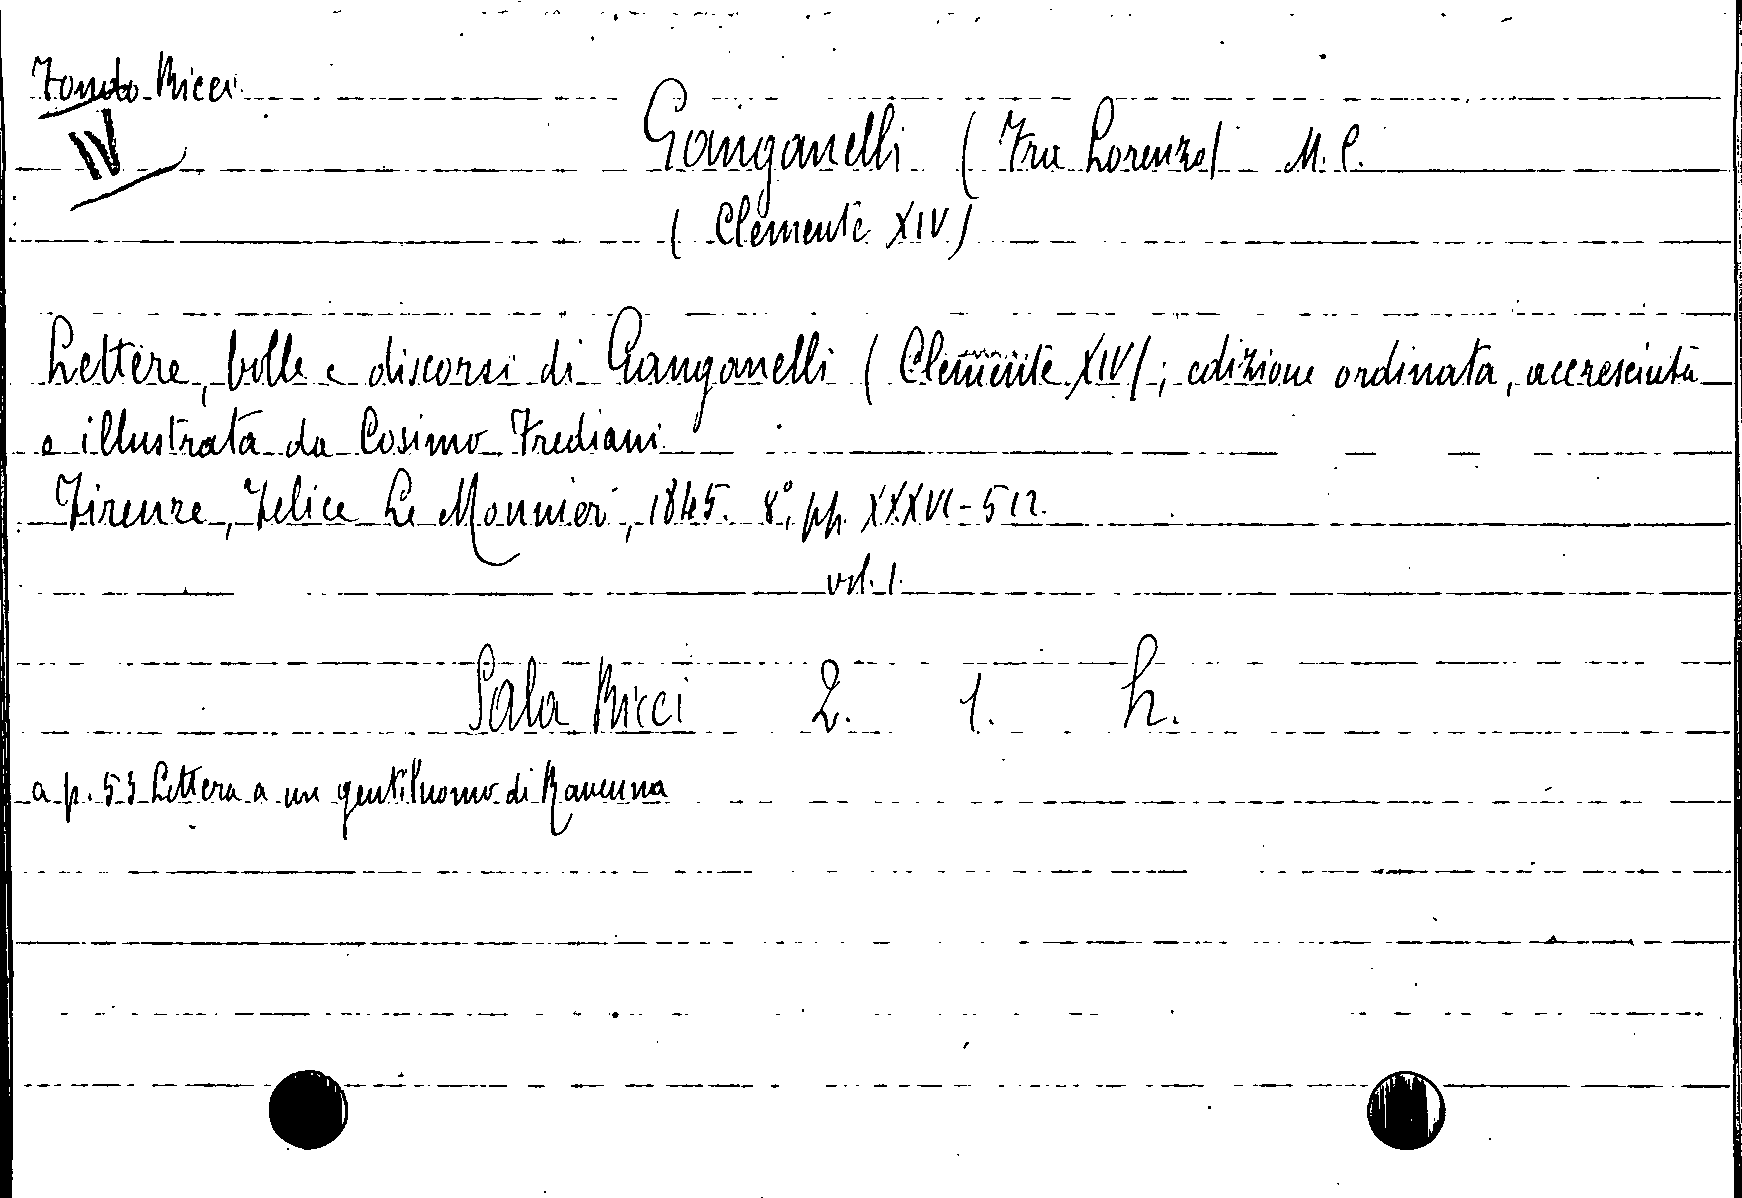 Fondo Ricci
IV
Ganganelli (Fra Lorenzo) M. C.
(Clemente XIV)
Lettere, bolle e discorsi di Ganganelli (Clemente XIV); edizione ordinata, accresciuta
e illustrata da Cosimo Frediani
Firenze, Felice Le Monnier, 1845. 8°, pp. XXXVI-512.
vol. 1.
Sala Ricci 2. 1. h.
a p. 53 Lettera a un gentiluomo di Ravenna